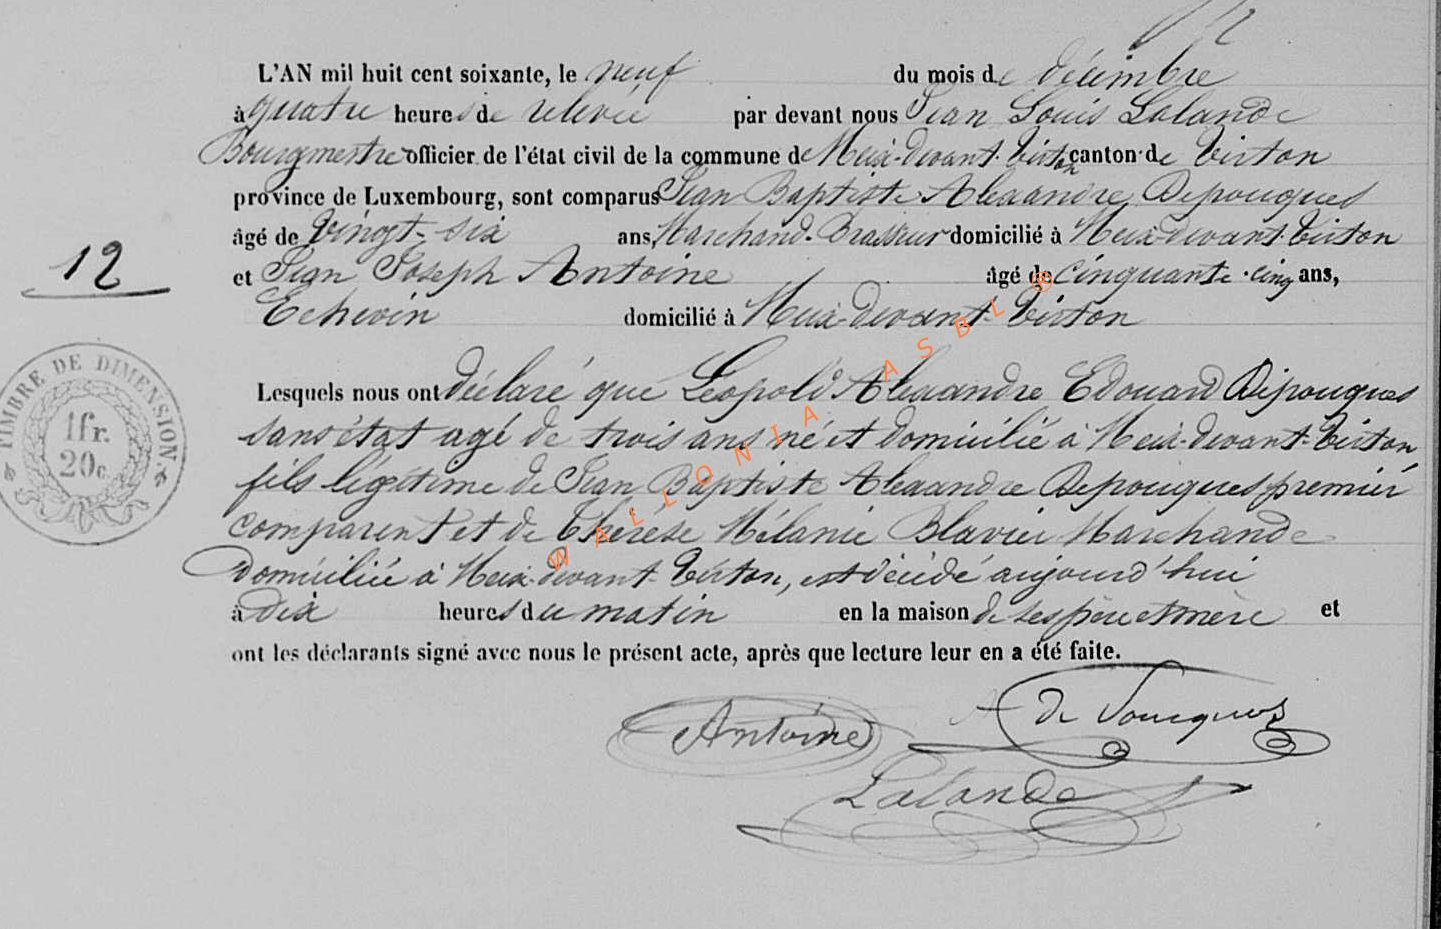 L'AN mil huit cent soixante, le neuf du mois de décembre
à quatre heures de relevée par devant nous Jean Louis Lalande
Bourgmestre officier de l'état civil de la commune de Meix-devant-Virton canton de Virton
province de Luxembourg, sont comparus Jean Baptiste Alexandre Depouques
âgé de vingt-six ans, Marchand-Brasseur domicilié à Meix-devant-Virton
12
et Jean Joseph Antoine âgé de cinquante-cinq ans,
Echevin domicilié à Meix-devant-Virton
TIMBRE DE DIMENSION
1 fr.
20 c.
Lesquels nous ont déclaré que Léopold Alexandre Edouard Depouques
sans état agé de trois ans né et domicilié à Meix-devant-Virton,
fils légitime de Jean Baptiste Alexandre Depouques premier
comparent et de Thérèse Mélanie Blavier Marchande
domiciliée à Meix-devant-Virton, est décédé aujourd'hui
à dix heures du matin en la maison de ses père et mère et
ont les déclarants signé avec nous le présent acte, après que lecture leur en a été faite.
Antoine
Lalande
WALLONIA ASBL ©